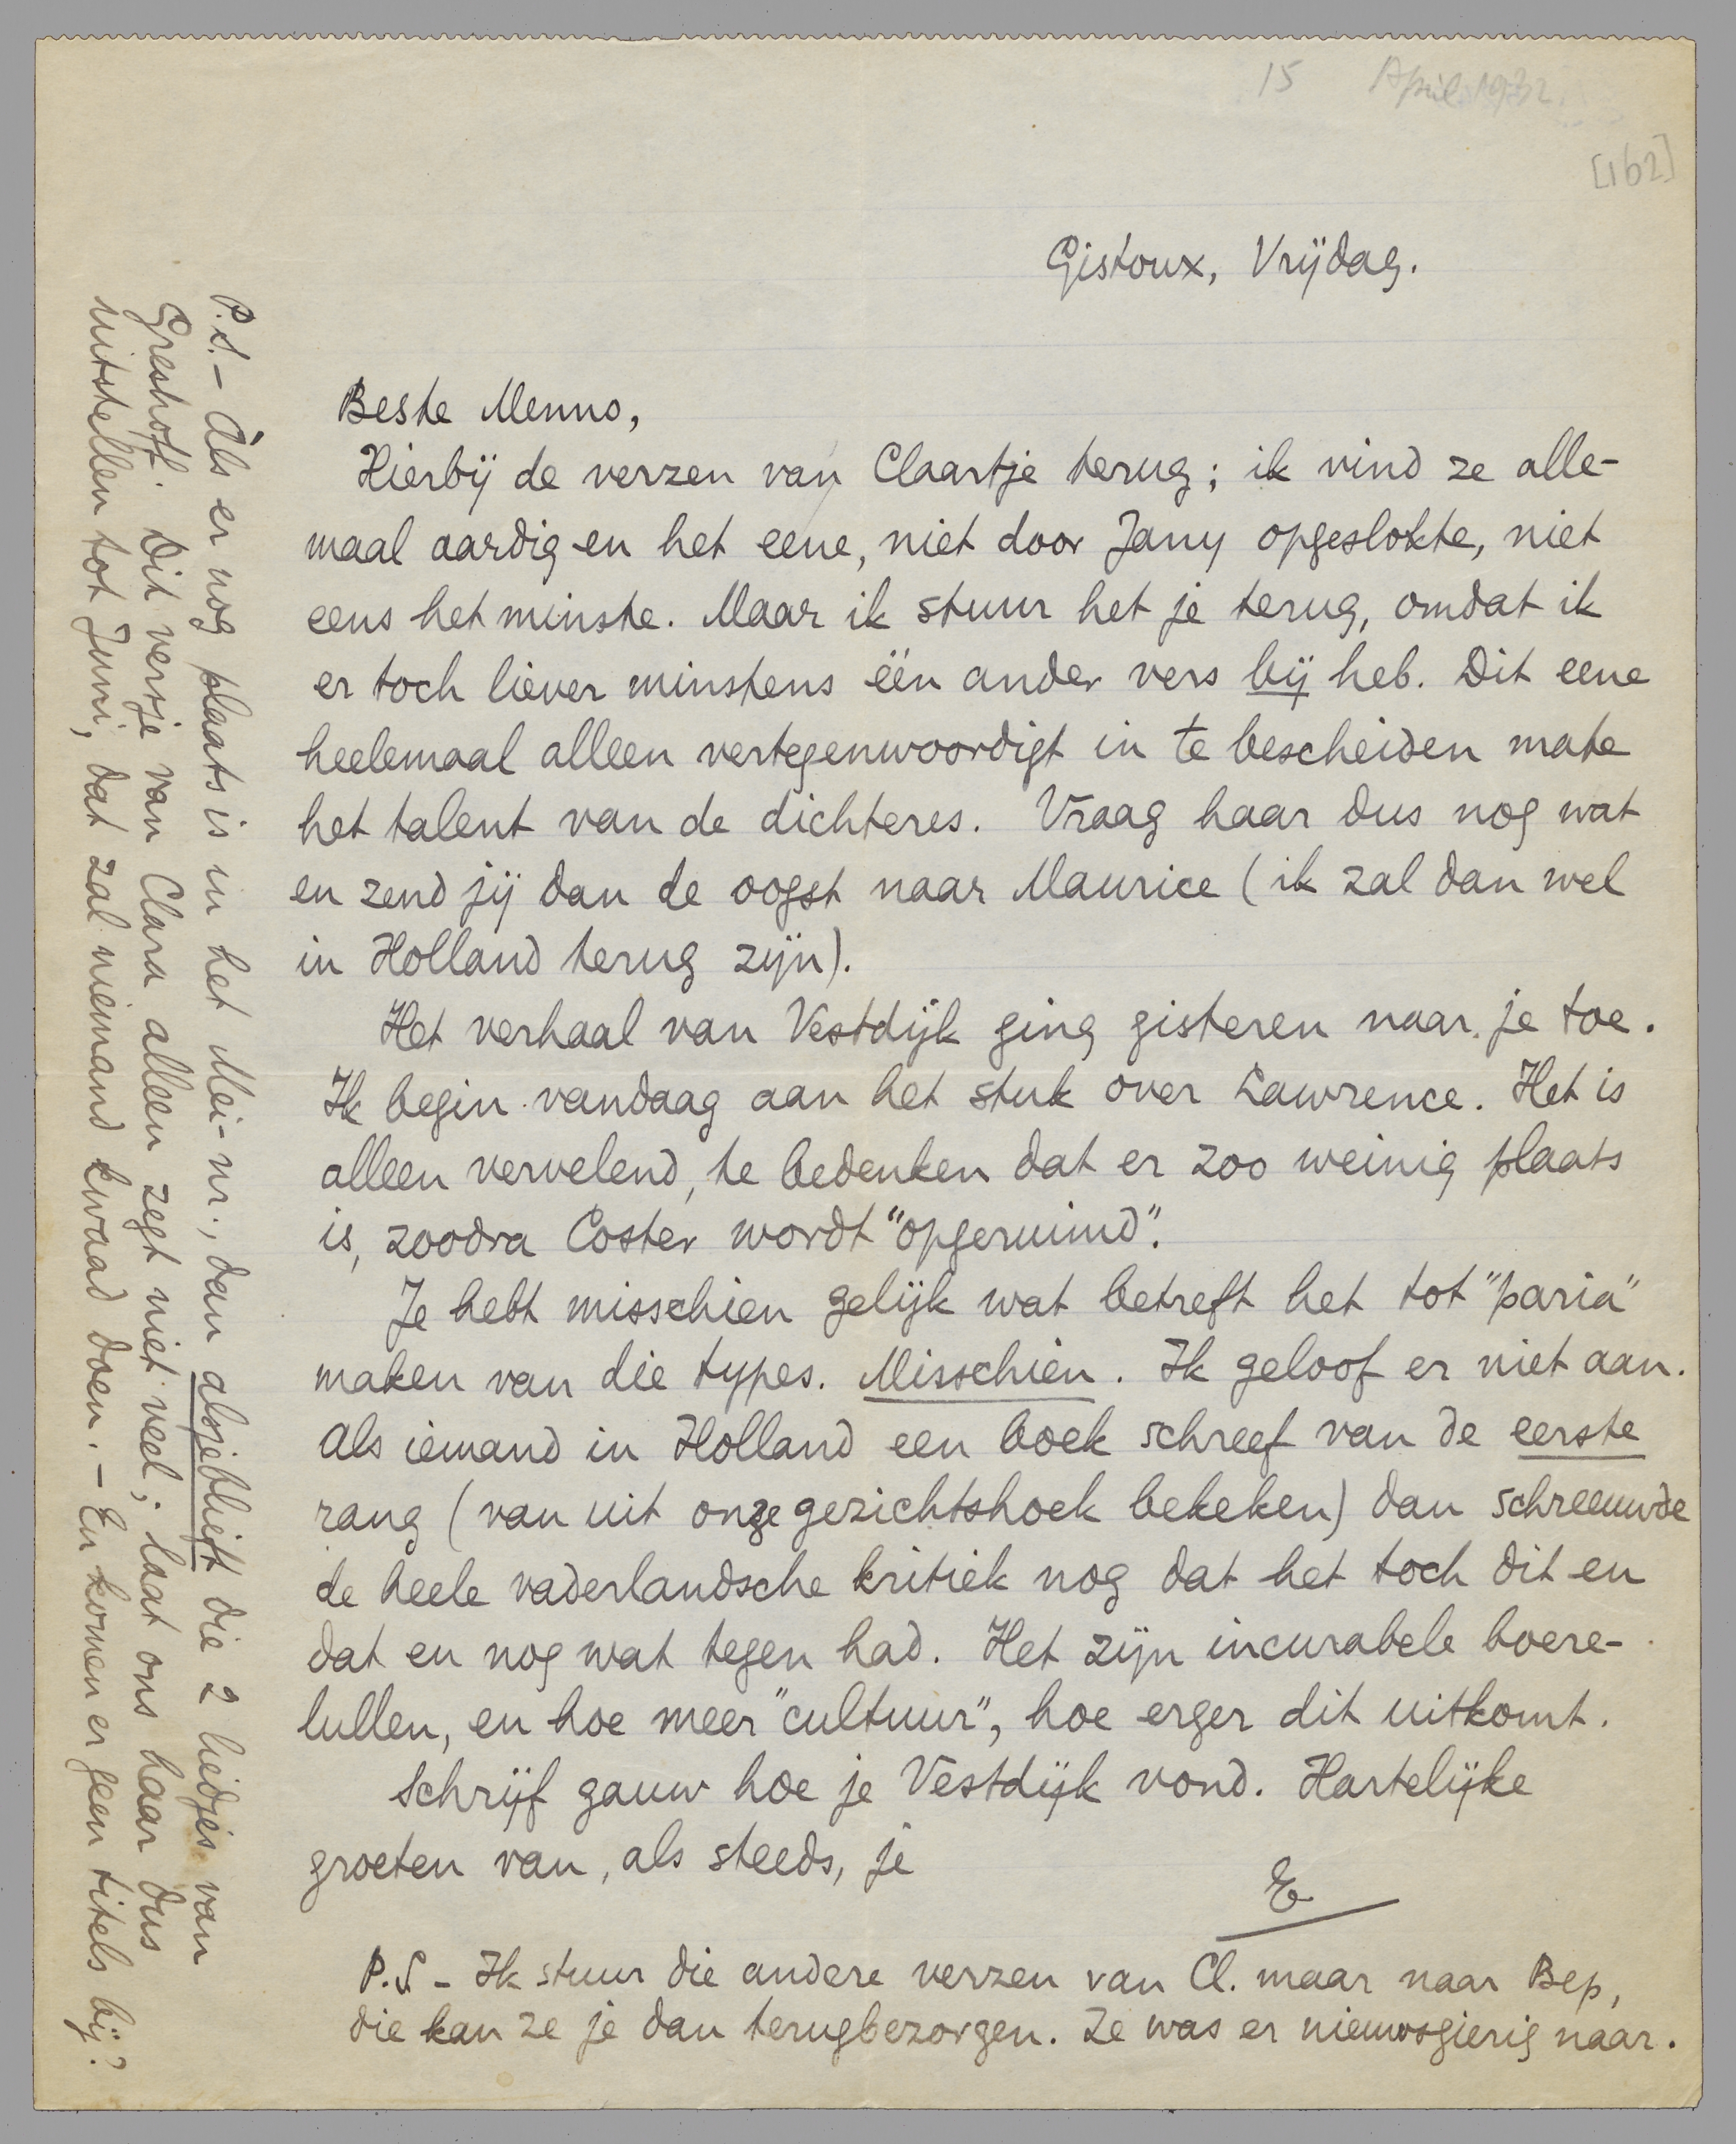 15 April 1932.
[162]
Gistoux, Vrijdag.
Beste Menno,
Hierbij de verzen van Claartje terug; ik vind ze alle-
maal aardig en het eene, niet door Jany opgeslokte, niet
eens het minste. Maar ik stuur het je terug, omdat ik
er toch liever minstens één ander vers bij heb. Dit eene
heelemaal alleen vertegenwoordigt in te bescheiden mate
het talent van de dichteres. Vraag haar dus nog wat
en zend jij dan de oogst naar Maurice (ik zal dan wel
in Holland terug zijn).
Het verhaal van Vestdijk ging gisteren naar je toe.
Ik begin vandaag aan het stuk over Lawrence. Het is
alleen vervelend, te bedenken dat er zoo weinig plaats
is, zoodra Coster wordt "opgeruimd".
Je hebt misschien gelijk wat betreft het tot "paria"
maken van die types. Misschien. Ik geloof er niet aan.
Als iemand in Holland een boek schreef van de eerste
rang (van uit onze gezichtshoek bekeken) dan schreeuwde
de heele vaderlandsche kritiek nog dat het toch dit en
dat en nog wat tegen had. Het zijn incurabele boere-
lullen, en hoe meer "cultuur", hoe erger dit uitkomt.
Schrijf gauw hoe je Vestdijk vond. Hartelijke
groeten van, als steeds, je
E
P.S - Ik stuur die andere verzen van Cl. maar naar Bep,
die kan ze je dan terugbezorgen. Ze was er nieuwsgierig naar.
P.S. - Àls er nog plaats is in het Mei-nr., dan alsjeblieft die 2 liedjes van
Greshoff. Dit versje van Clara alleen zegt niet veel; laat ons haar dus
uitstellen tot Juni, dat zal niemand kwaad doen. - En komen er geen titels bij?